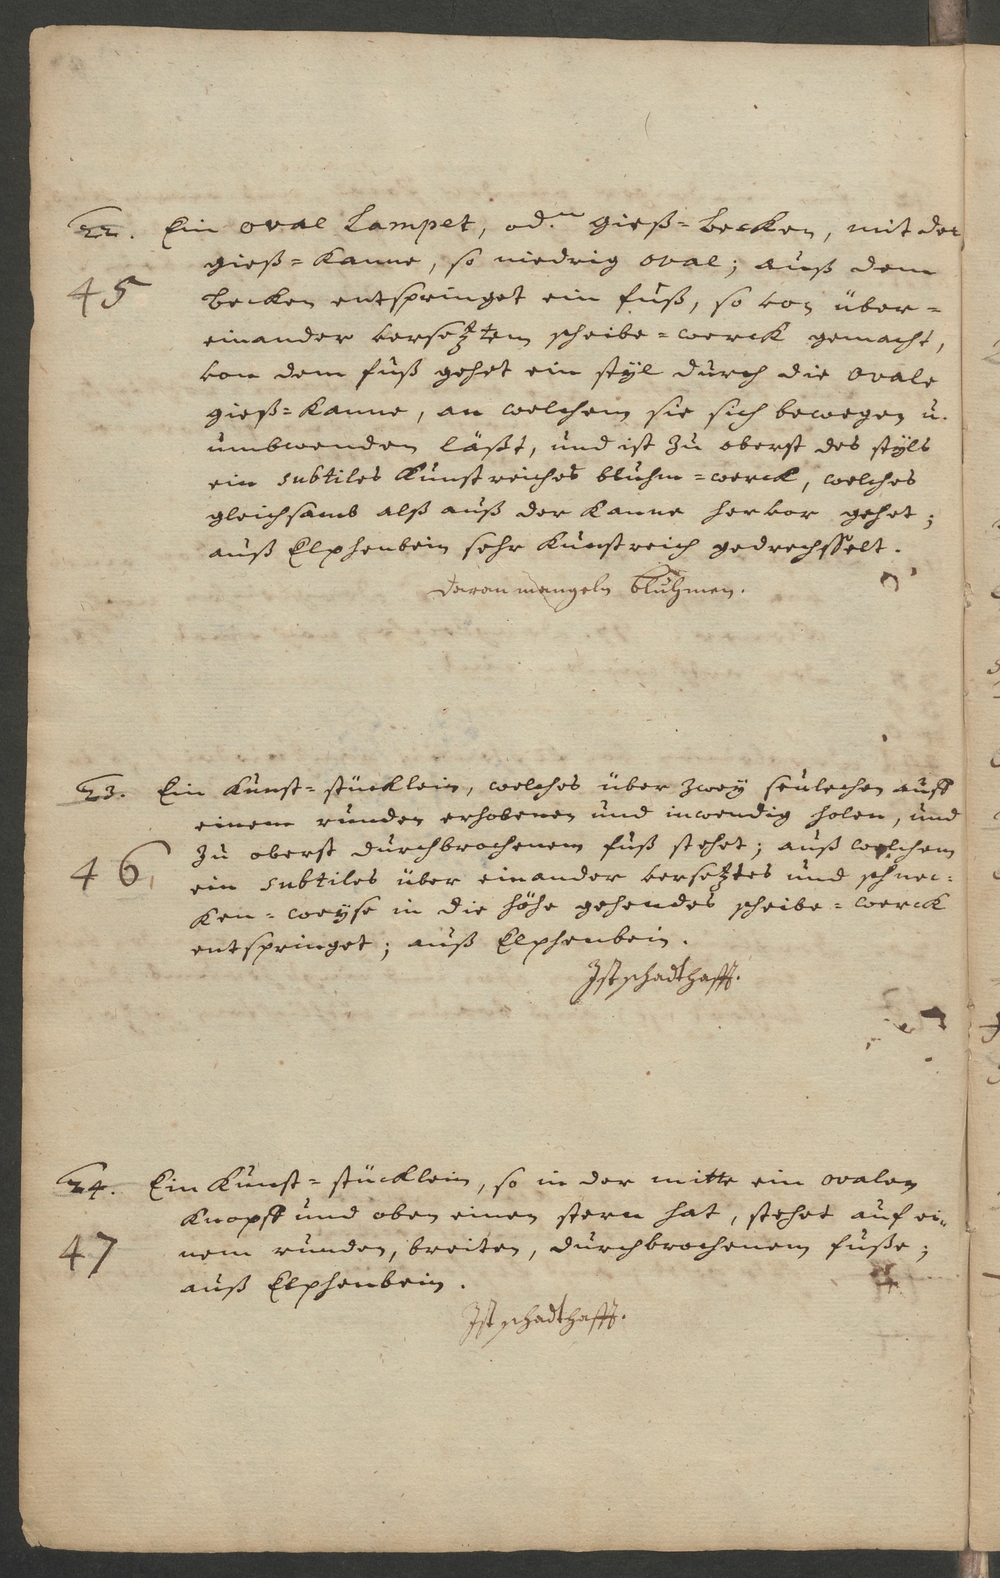 22. Ein oval Lampet, od. gieß=becken, mit der
45
gieß=Kanne, so niedrig oval; auß dem
becken entspringet ein fuß, so von über=
einander versetztem scheibe=werck gemacht,
von dem fuß gehet ein styl durch die ovale
gieß=Kanne, an welchem sie sich bewegen u.
umbwenden läßt, und ist zu oberst des styls
ein subtiles Kunstreiches bluhm=werck, welches
gleichsamb alß auß der Kanne hervor gehet;
auß Elphenbein sehr Kunstreich gedrechsselt.
daran mangeln bluhmen.
23. Ein Kunst=stücklein, welches über zwey seulechen auff
einem runden erhobenen und inwendig holen, und
46
zu oberst durchbrochenem fuß stehet; auß welchem
ein subtiles über einander versetztes und schnec=
Ken=weyse in die höhe gehendes scheibe=werck
entspringet; auß Elphenbein.
Ist schadthafft.
24. Ein Kunst=stücklein, so in der mitte ein ovalen
Knopff und oben einen stern hat, stehet auf ei=
47
nem runden, breiten, durchbrochenem fuße;
auß Elphenbein.
Ist schadthafft.